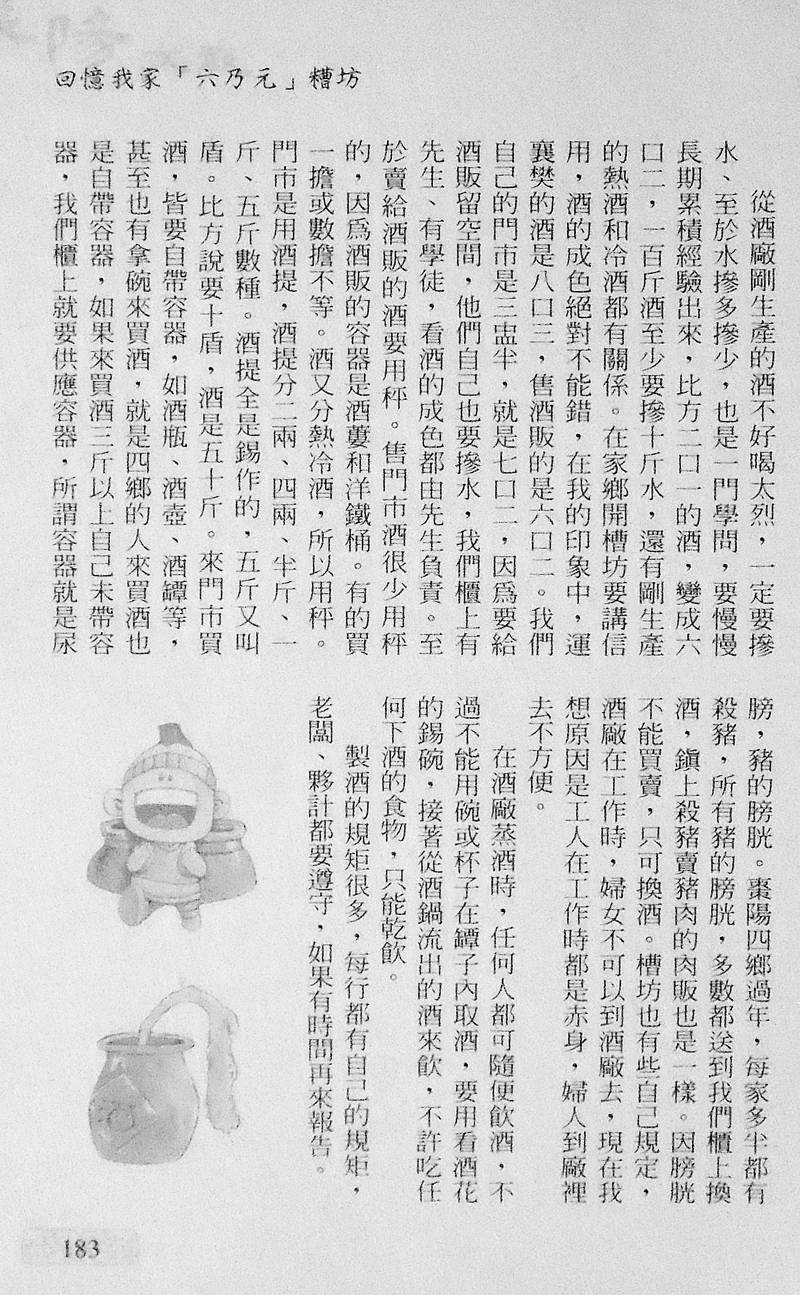 回憶我家「六乃元」糟坊
從酒廠剛生產的酒不好喝太烈，一定要摻
水、至於水摻多摻少，也是一門學問，要慢慢
長期累積經驗出來，比方二口一的酒，變成六
口二，一百斤酒至少要摻十斤水，還有剛生產
的熱酒和冷酒都有關係。在家鄉開槽坊要講信
用，酒的成色絕對不能錯，在我的印象中，運
襄樊的酒是八口三，售酒販的是六口二。我們
自己的門市是三盅半，就是七口二，因為要給
酒販留空間，他們自己也要摻水，我們櫃上有
先生、有學徒，看酒的成色都由先生負責。至
於賣給酒販的酒要用秤。售門市酒很少用秤
的，因為酒販的容器是酒蔞和洋鐵桶。有的買
一擔或數擔不等。酒又分熱冷酒，所以用秤。
門市是用酒提，酒提分二兩、四兩、半斤、一
斤、五斤數種。酒提全是錫作的，五斤又叫
盾。比方說要十盾，酒是五十斤。來門市買
酒，皆要自帶容器，如酒瓶、酒壺、酒罈等，
甚至也有拿碗來買酒，就是四鄉的人來買酒也
是自帶容器，如果來買酒三斤以上自己未帶容
器，我們櫃上就要供應容器，所謂容器就是尿
膀，豬的膀胱。棗陽四鄉過年，每家多半都有
殺豬，所有豬的膀胱，多數都送到我們櫃上換
酒，鎮上殺豬賣豬肉的肉販也是一樣。因膀胱
不能買賣，只可換酒。槽坊也有些自己規定，
酒廠在工作時，婦女不可以到酒廠去，現在我
想原因是工人在工作時都是赤身，婦人到廠裡
去不方便。
在酒廠蒸酒時，任何人都可隨便飲酒，不
過不能用碗或杯子在罈子內取酒，要用看酒花
的錫碗，接著從酒鍋流出的酒來飲，不許吃任
何下酒的食物，只能乾飲。
製酒的規矩很多，每行都有自己的規矩，
老闆、夥計都要遵守，如果有時間再來報告。
183